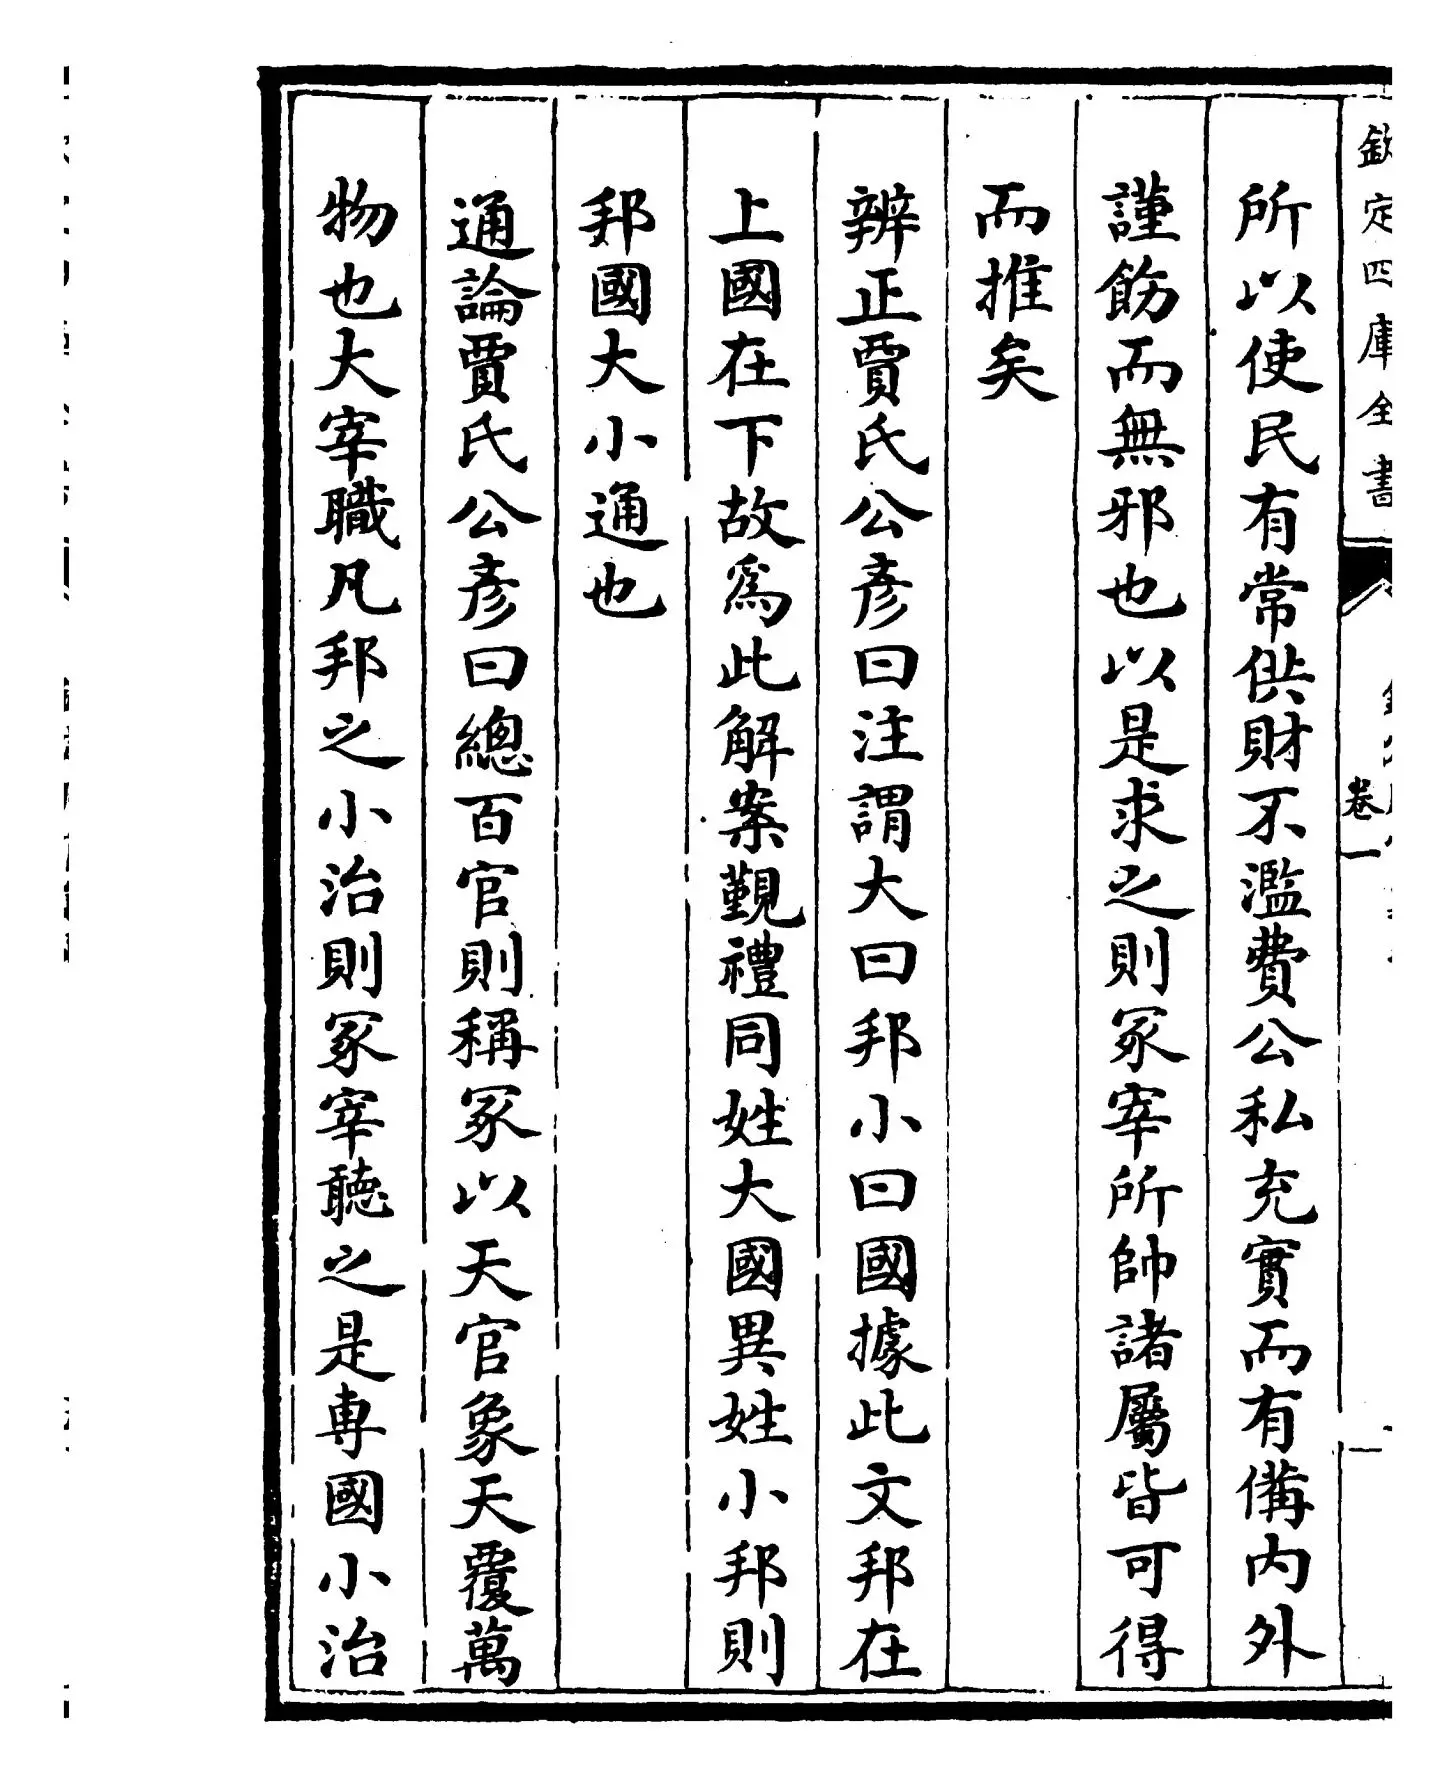 欽定四庫全書
卷一
所以使民有常供財不濫費公私充實而有備内外
謹飭而無邪也以是求之則冢宰所帥諸屬皆可得
而推矣
辨正賈氏公彦曰注謂大曰邦小曰國據此文邦在
上國在下故為此解案覲禮同姓大國異姓小邦則
邦國大小通也
通論賈氏公彦曰總百官則稱冢以天官象天覆萬
物也大宰職凡邦之小治則冢宰聽之是専國小治